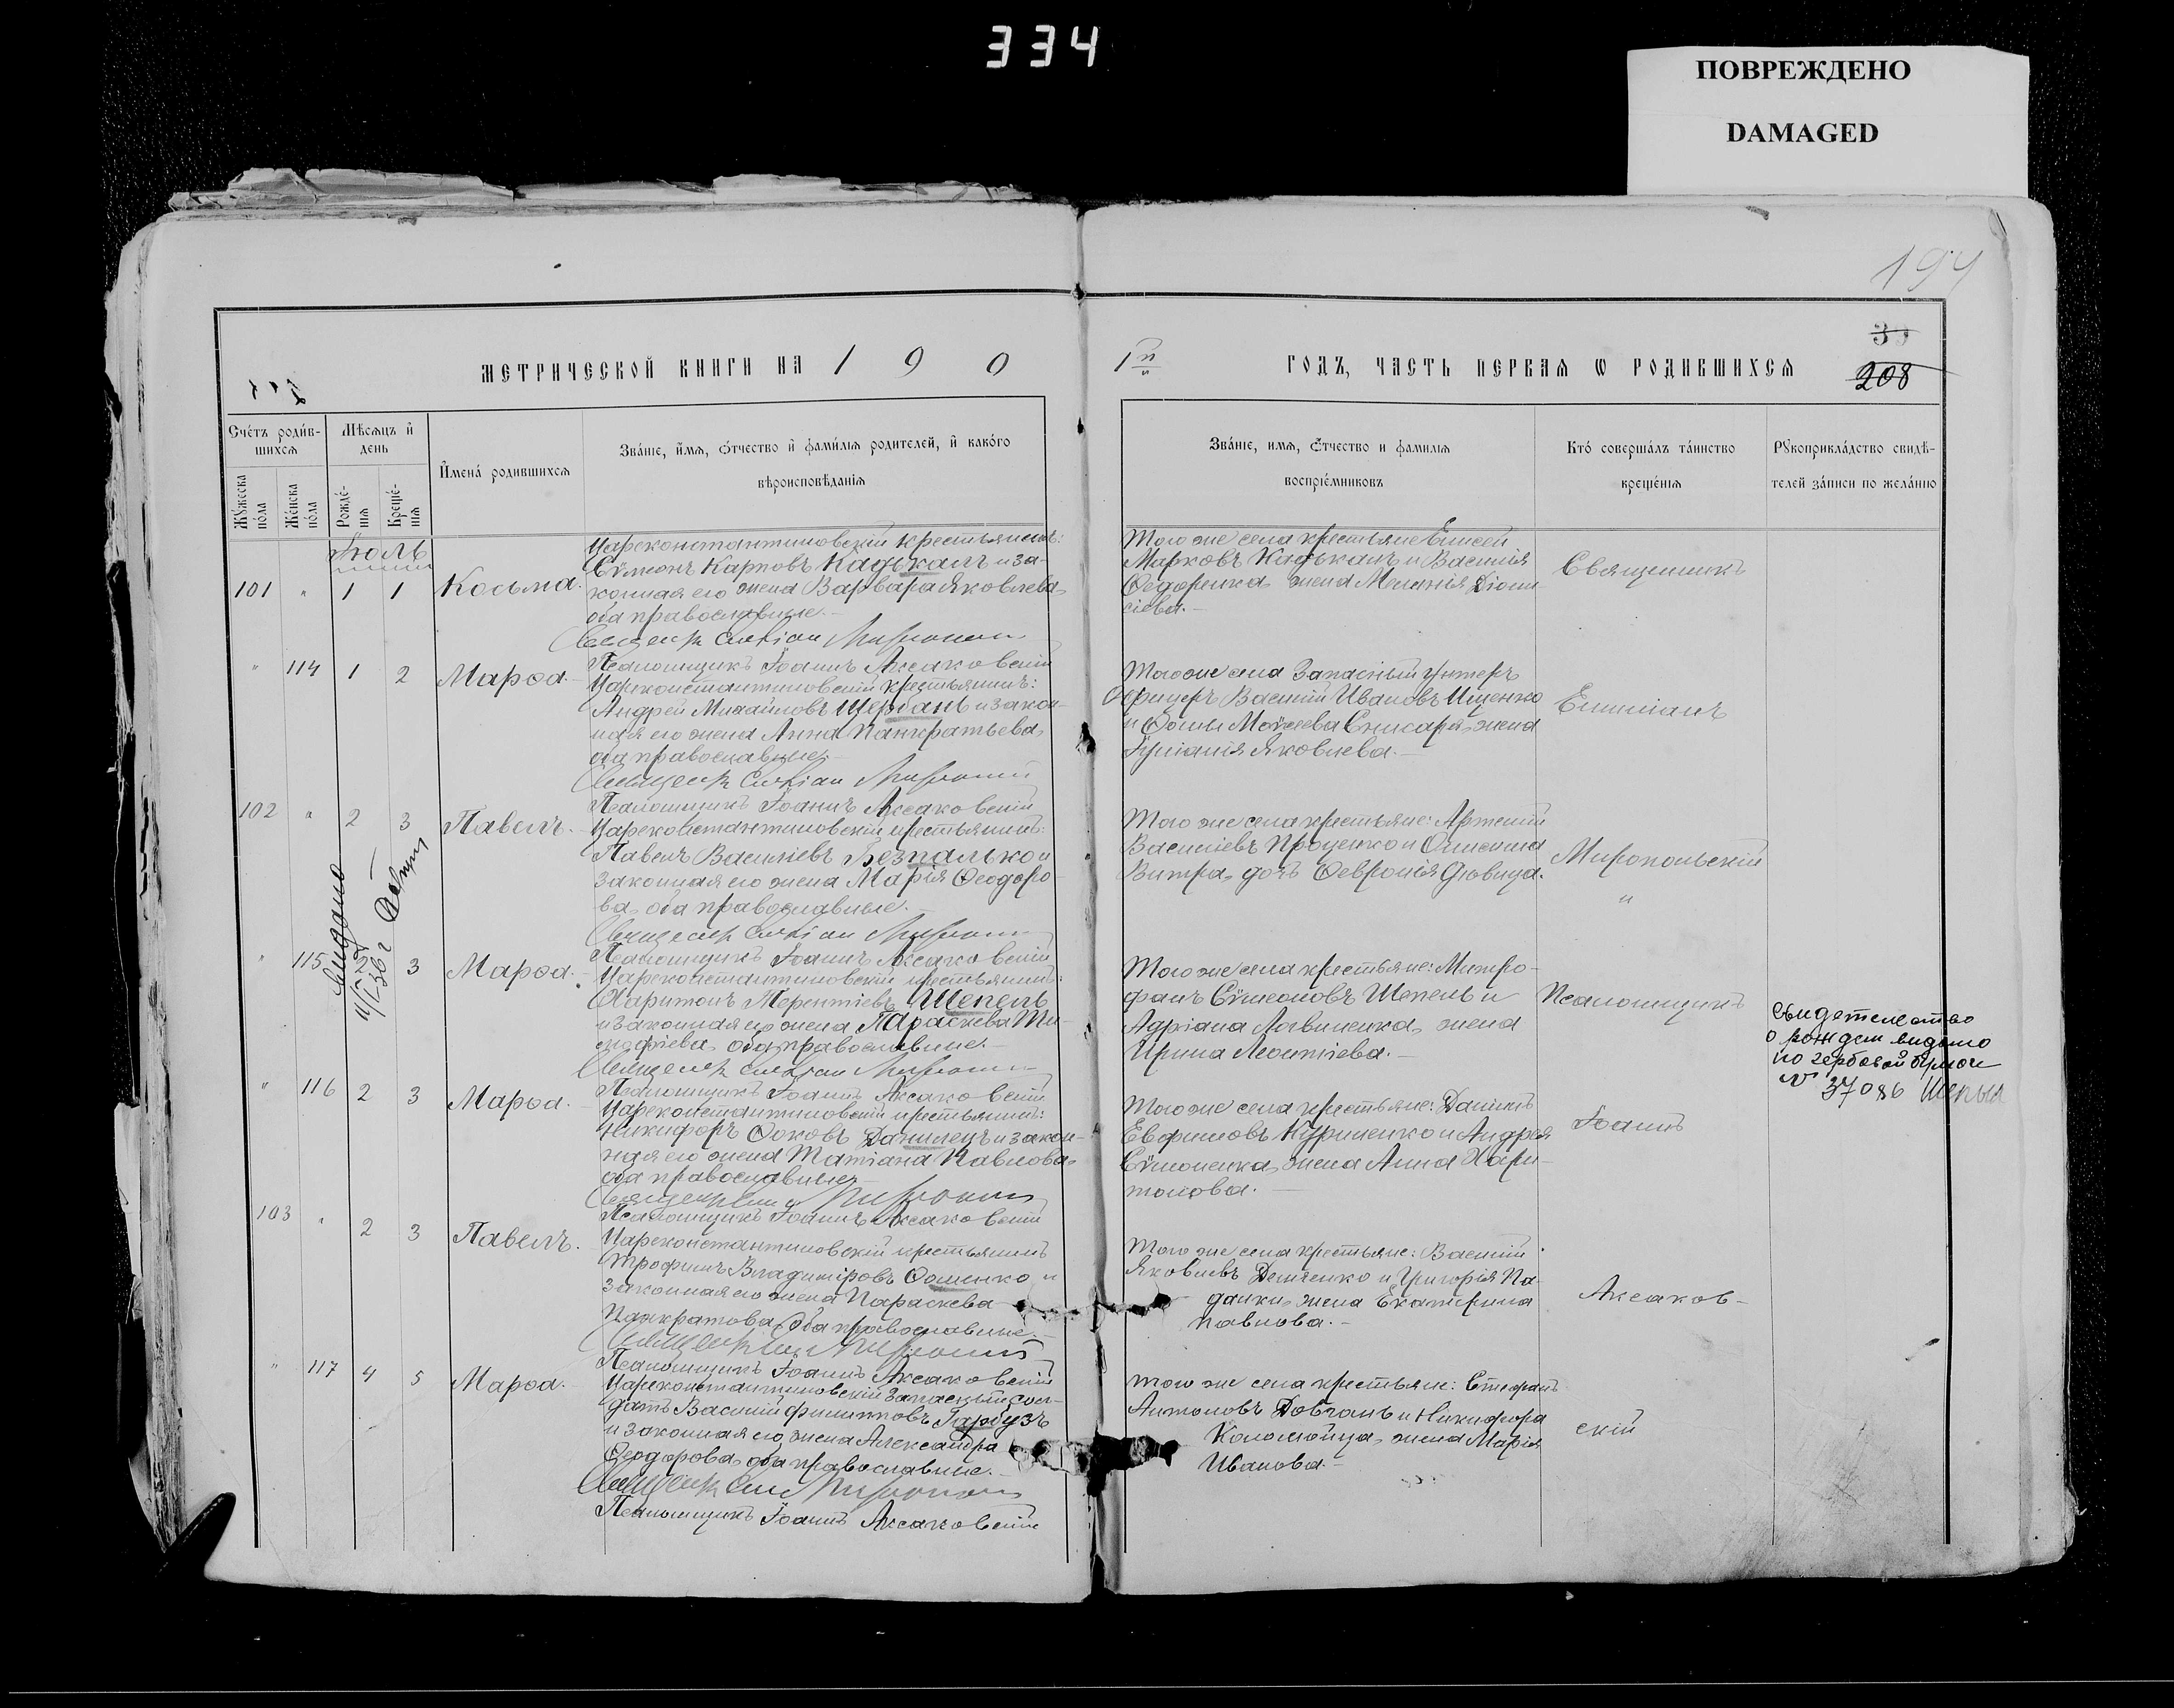 334
ПОВРЕЖДЕНО
DAMAGED
194
39
208
МЕТРИЧЕСКОЙ КНИГИ НА 190
1го ГОДЪ, ЧАСТЬ ПЕРВАЯ Ѡ РОДИВШИХСЯ
Счетъ родив-
шихся
Мѣсяцъ и
день
Мужеска
пола
Женска
пола
Рожде-
нія
Креще-
нія
Имена родившихся
Званіе, имя, отчество и фамилія родителей, и какого
вѣроисповѣданія
Званіе, имя, отчество и фамилія
воспріемниковъ
Кто совершалъ таинство
крещенія
Рукоприкладство свидѣ-
телей записи по желанію
Іюль
101 " 1 1 Косьма.
Цареконстантиновскій крестьянинъ:
Сѵмеонъ Карповъ Кадькалъ и за-
конная его жена Варвара Яковлева,
оба православные.-
Того же села крестьяне Елисей
Марковъ Кадькалъ и Василія
Ѳедоренка, жена Меланія Діони-
сіева.-
Священникъ
Псаломщикъ Іоаннъ Аксаковскій
" 114 1 2 Марѳа.
Цареконстантиновскій крестьянинъ:
Андрей Михайловъ Щербань и закон-
ная его жена Анна Панкратьева,
оба православные.-
Того же села Запасный унтеръ
Офицеръ Василій Ивановъ Ищенко
и Ѳомы Моѵсеева Снисаря, жена
Іуліанія Яковлева.-
Псаломщикъ Іоаннъ Аксаковскій
102 " 2 3 Павелъ.
Цареконстантиновскій крестьянинъ:
Павелъ Васильевъ Безпалько и
законная его жена Марія Ѳеодоро-
ва, оба православные.-
Того же села крестьяне: Артемій
Васильевъ Проценко и
дочь Ѳевронія дѣвица.
Миропольскій
"
Псаломщикъ Іоаннъ Аксаковскій
Выдано
" 115 2 3 Марѳа.
Цареконстантиновскій крестьянинъ:
Харитонъ Терентіевъ Шепель
и законная его жена Параскева Ти-
моѳіева, оба православные.-
Того же села крестьяне: Митро-
фанъ Сѵмеоновъ Шепель и
Адріана Логвиненка, жена
Ирина Леонтіева.-
Псаломщикъ
Свидетельство
о рожден выдано
по гербовой бумаге
№ 37086 Шепыл
Псаломщикъ Іоаннъ Аксаковскій
" 116 2 3 Марѳа.
Цареконстантиновскій крестьянинъ:
Никифоръ Ѳоковъ Данилецъ и закон-
ная его жена Татіана Павлова,
оба православные.-
Того же села крестьяне: Даніилъ
Евфимовъ Куриленко и Андрея
Сѵмоненка, жена Анна Хари-
тонова.-
Іоаннъ
Псаломщикъ Іоаннъ Аксаковскій
103 " 2 3 Павелъ.
Цареконстантиновскій крестьянинъ
Трофимъ Владиміровъ Ѳоменко и
законная его жена Параскева
Панкратова, оба православные.-
Того же села крестьяне: Василій
Яковлевъ Демченко и Григорія Па-
далки, жена Екатерина
Павлова.-
Аксаков-
Псаломщикъ Іоаннъ Аксаковскій
" 117 4 5 Марѳа.
Цареконстантиновскій запасный сол-
датъ Василій Филипповъ Гарбузъ
и законная его жена Александра
Ѳеодорова, оба православные.-
Того же села крестьяне: Стефанъ
Антоновъ Довгань и Никифора
Коломойца, жена Марія
Иванова.-
скій
Псаломщикъ Іоаннъ Аксаковскій